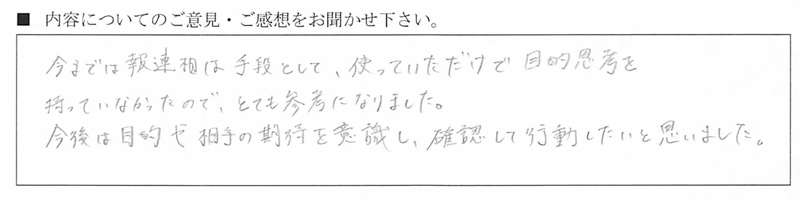 ■ 内容についてのご意見・ご感想をお聞かせ下さい。
今までは報連相は手段として、使っていただけで目的思考を
持っていなかったので、とても参考になりました。
今後は目的や相手の期待を意識し、確認して行動したいと思いました。